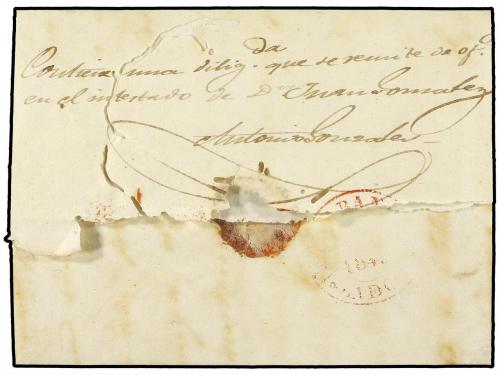 da
Contiene una dilig.ª que se remite de of.º
en el intestado de Dn Juan Gonzalez
Antonio Gonzalez
BA
184